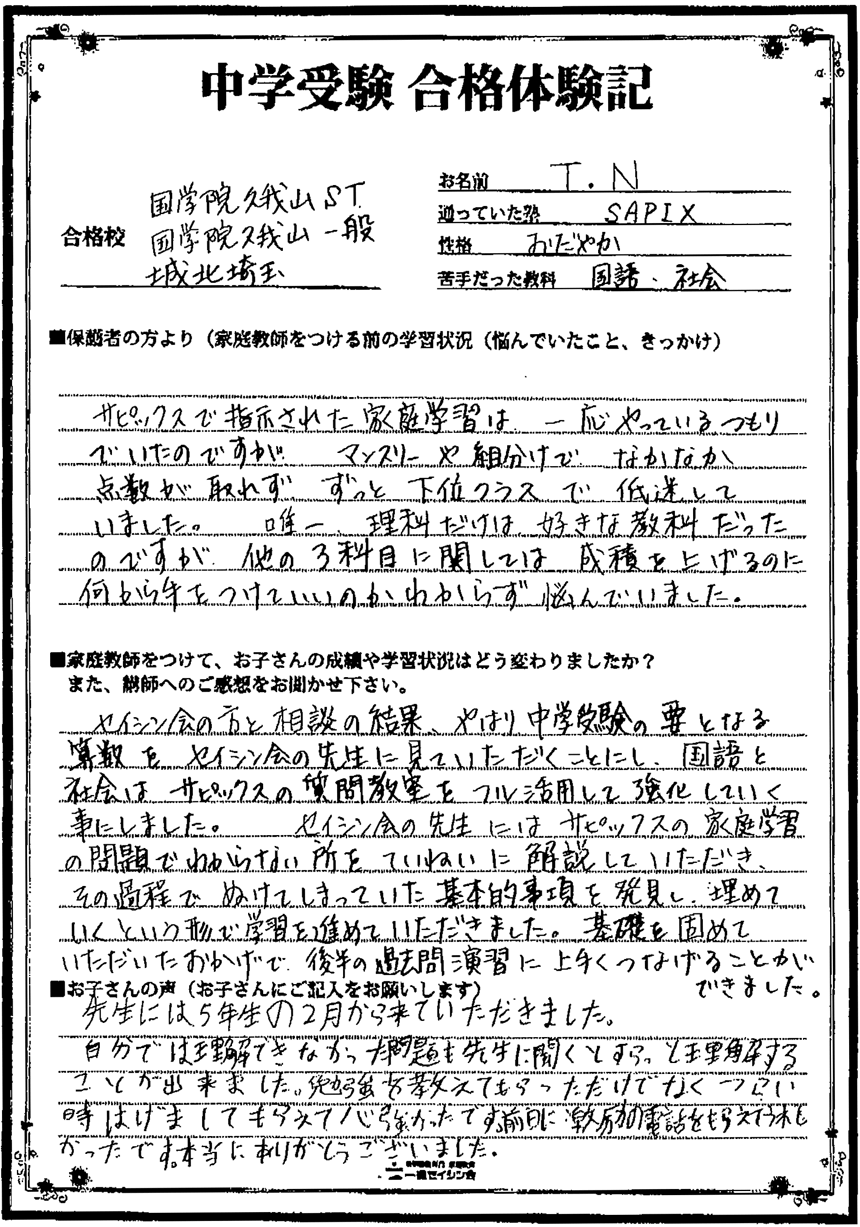 中学受験 合格体験記
合格校
国学院久我山 ST
国学院久我山 一般
城北埼玉
お名前 T.N
通っていた塾 SAPIX
性格 おだやか
苦手だった教科 国語・社会
■保護者の方より（家庭教師をつける前の学習状況（悩んでいたこと、きっかけ）
サピックスで指示された家庭学習は 一応やっているつもり
でいたのですが マンスリーや組分けで なかなか
点数が取れず ずっと下位クラスで低迷して
いました。 唯一、理科だけは好きな教科だった
のですが、他の3科目に関しては 成積を上げるのに
何から手をつけていいのかわからず悩んでいました。
■家庭教師をつけて、お子さんの成績や学習状況はどう変わりましたか？
また、講師へのご感想をお聞かせ下さい。
セイシン会の方と相談の結果、やはり中学受験の要となる
算数を セイシン会の先生に見ていただくことにし、国語と
社会は サピックスの質問教室をフル活用して強化していく
事にしました。 セイシン会の先生にはサピックスの家庭学習
の問題でわからない所をていねいに解説していただき、
その過程で ぬけてしまっていた基本的事項を発見し、埋めて
いくという形で学習を進めていただきました。基礎を固めて
いただいたおかげで、後半の過去問演習に上手くつなげることが
できました。
■お子さんの声（お子さんにご記入をお願いします）
先生には5年生の2月から来ていただきました。
自分では理解できなかった問題も先生に聞くとすらっと理解する
ことが出来ました。勉強を教えてもらっただけでなく つらい
時はげましてもらえて心強かったです。前日に激励の電話をもらえてうれし
かったです。本当にありがとうございました。
一橋セイシン会